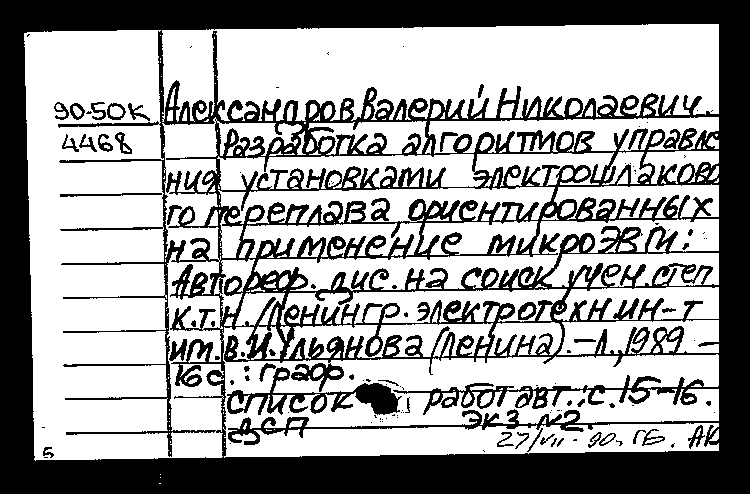 90-50К Александров, Валерий Николаевич.
4468 Разработка алгоритмов управле
ния установками электрошлаково
го переплава, ориентированных
на применение микроЭВМ:
Автореф. дис. на соиск. учен. степ.
к.т.н. /Ленингр. электротехн. ин-т
им. В.И. Ульянова (Ленина). – Л., 1989. –
16 с. : граф.
Список работ авт.: с. 15-16.
ДСП Экз. №2.
5 27/VII-90. ГБ. АК